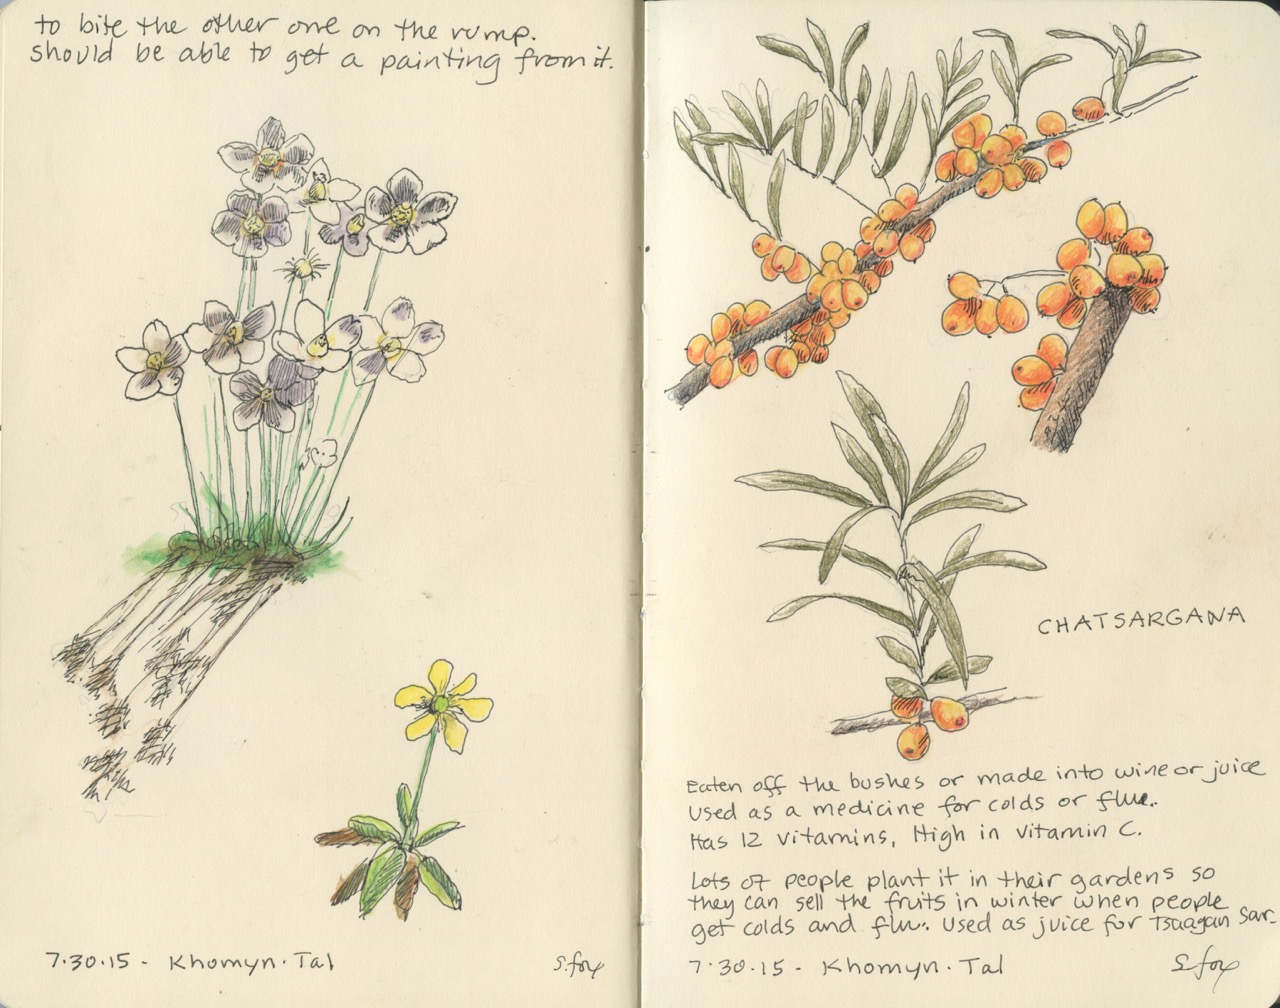 to bite the other one on the rump.
should be able to get a painting from it.
7.30.15 - Khomyn.Tal
S.fox
CHATSARGANA
Eaten off the bushes or made into wine or juice
Used as a medicine for colds or flu.
Has 12 vitamins, High in vitamin C.
Lots of people plant it in their gardens so
they can sell the fruits in winter when people
get colds and flu. Used as juice for Tsaagan Sar.
7.30.15 - Khomyn.Tal
S.fox